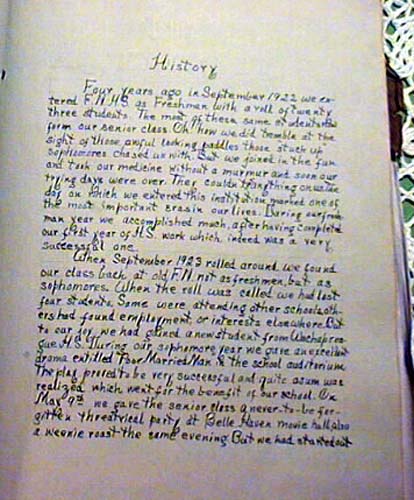 History
Four years ago in September 1922 we en-
tered F.N.H.S. as Freshman with a roll of twenty
three students. The most of these same students
form our senior class. Oh! how we did tremble at the
sight of those awful looking paddles those stuck up
sophomores chased us with. But we joined in the fun
and took our medicine without a murmur and soon our
trying days were over. They couldn't
day on which we entered this institution marked one of
the most important eras in our lives. During our fresh-
man year we accomplished much, after having completed
our first year of H.S. work which indeed was a very
successful one.
When September 1923 rolled around we found
our class back at old F.N. not as freshmen, but as
sophomores. When the roll was called we had lost
four students. Some were attending other schools, oth-
ers had found employment, or interests elsewhere. But
to our joy we had gained a new student from Wachaprea-
gue H.S. During our sophomore year we gave an excellent
drama entitled "Poor Married Man" in the school auditorium
The play proved to be very successful and quite a sum was
realized which went for the benefit of our school. On
May 9th we gave the senior class a never-to-be-for-
gitten threatrical party at Belle Haven movie hall, also
a weenie roast the same evening. But we had started out